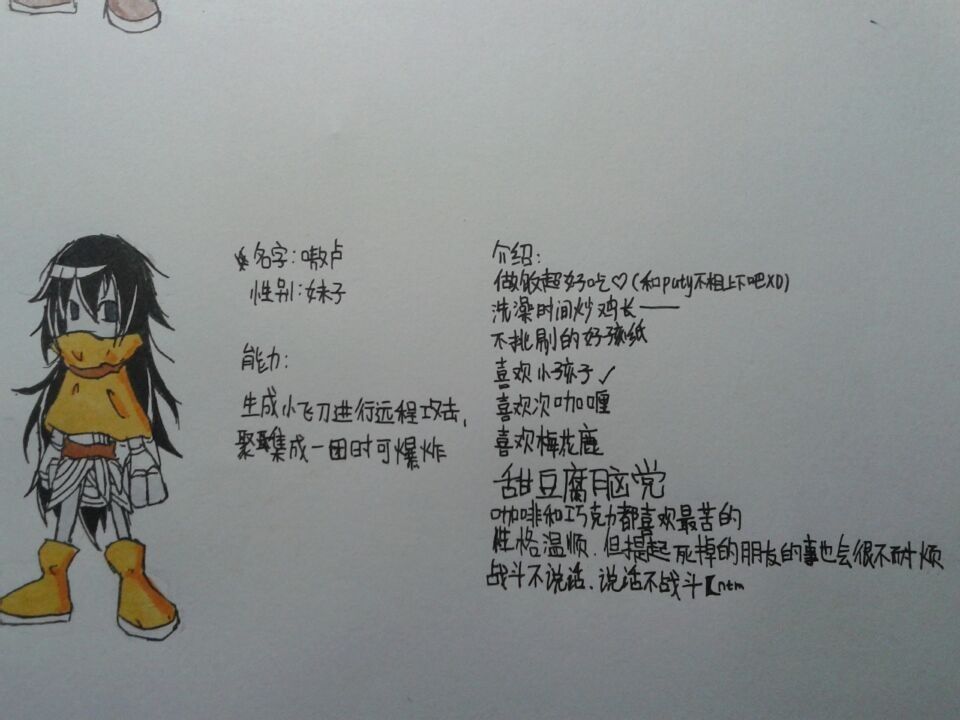 名字:嗷卢
性别:妹子
能力:
生成小飞刀进行远程攻击,
聚集成一团时可爆炸
介绍:
做饭超好吃♡(和puty不相上下吧XD)
洗澡时间炒鸡长——
不挑剔的好孩纸
喜欢小孩子✓
喜欢次咖喱
喜欢梅花鹿
甜豆腐脑党
咖啡和巧克力都喜欢最苦的
性格温顺、但提起死掉的朋友的事也会很不耐烦
战斗不说话、说话不战斗【ntm